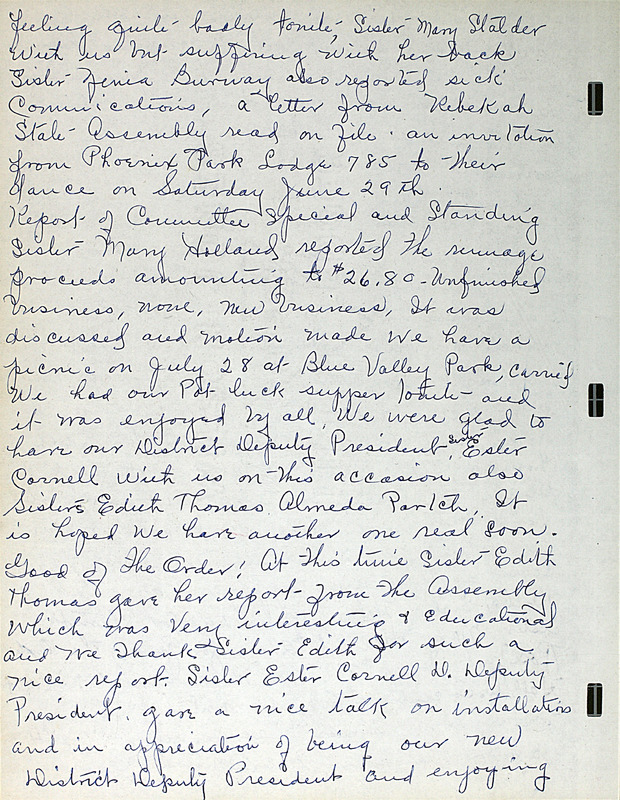 feeling quite badly tonite, Sister Mary Stalder
With us but suffering With her back
Sister Zenia Burway also reported sick
Communications, a letter from Rebekah
State Assembly read on file. an invitation
from Phoenix Park Lodge 785 to their
dance on Saturday June 29th.
Report of Committee Special and Standing
Sister Mary Holland reported the rumage
proceeds amounting to $26.80. Unfinished
business, none, new business, It was
discussed and motion made We have a
picnic on July 28 at Blue Valley Park, carried
We had our Pot luck supper tonite and
it was enjoyed by all, We were glad to
have our District Deputy President, Sister Ester
Cornell With us on this accasion also
Sisters Edith Thomas Almeda Partch. It
is hoped We have another one real soon.
Good of The Order! At This time Sister Edith
Thomas gave her report from The Assembly
Which was Very interesting & Educational
and We Thank Sister Edith for such a
nice report. Sister Ester Cornell D. Deputy
President. gave a nice talk on installation
and in appreciation of being our new
District Deputy President and enjoying